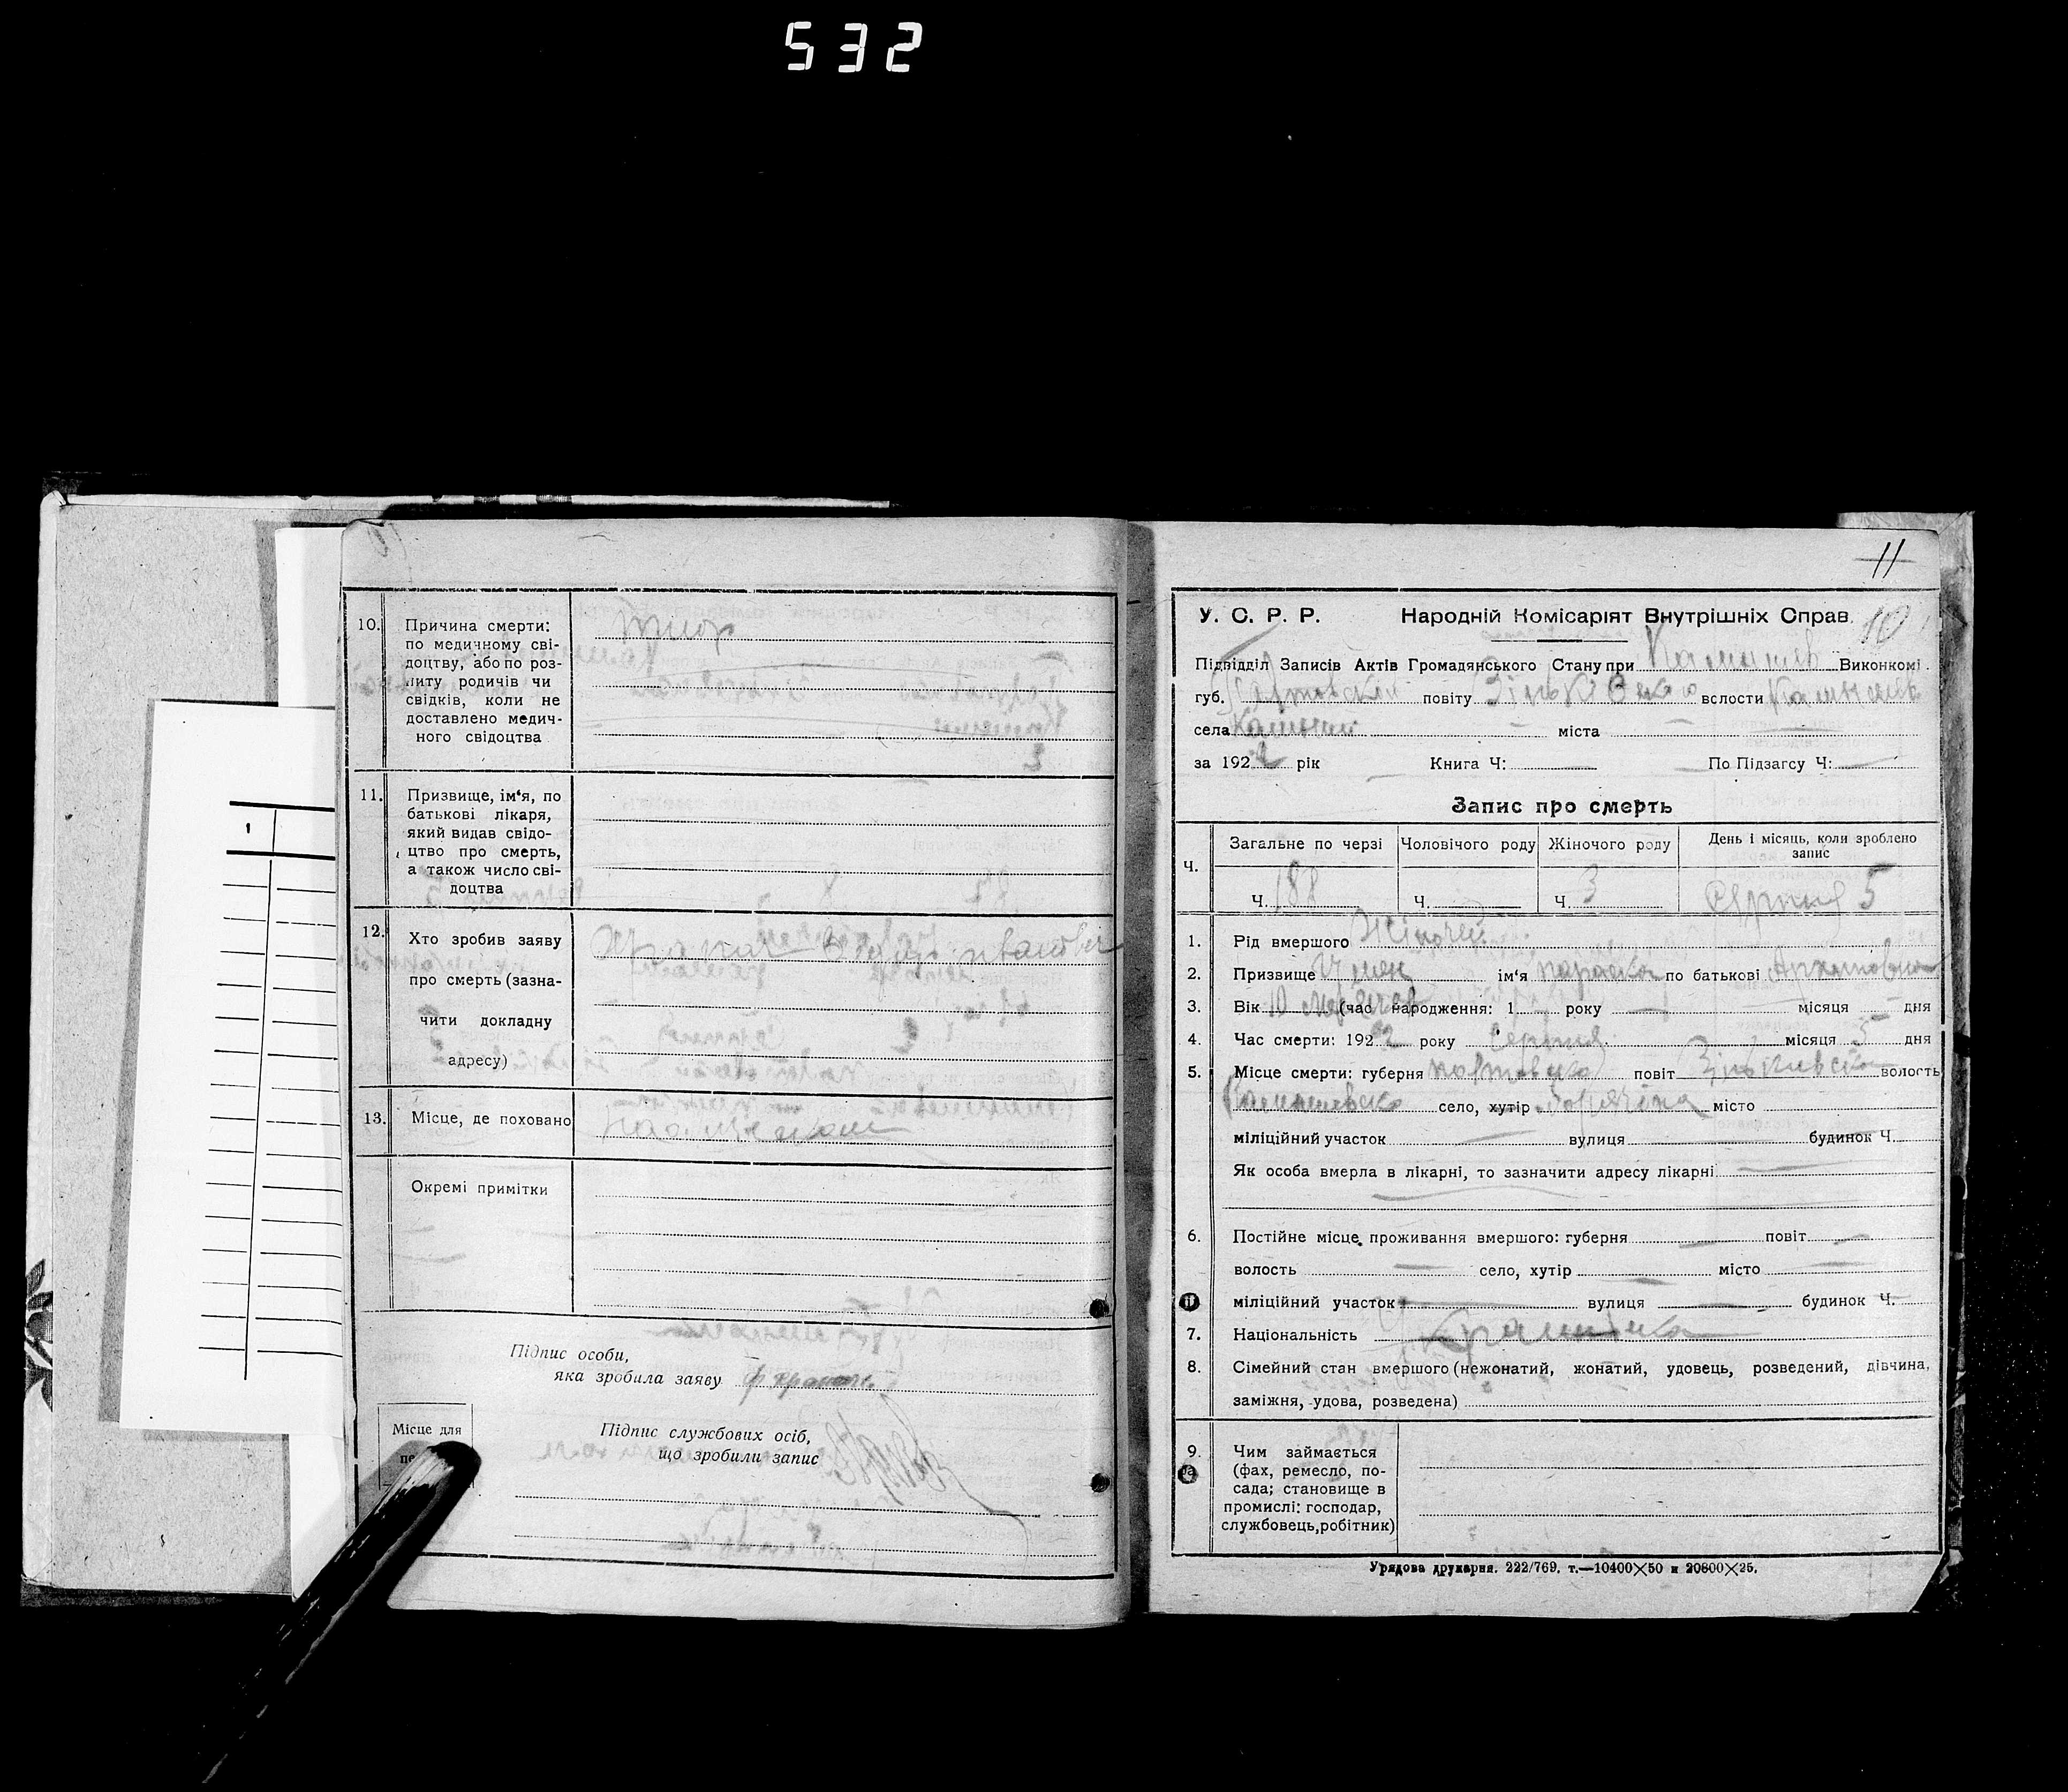 532
10.
Причина смерти:
по медичному сві-
доцтву, або по роз-
питу родичів чи
свідків, коли не
доставлено медич-
ного свідоцтва
11.
Призвище, ім'я, по
батькові лікаря,
який видав свідо-
цтво про смерть,
а також число сві-
доцтва
12.
Хто зробив заяву
про смерть (зазна-
чити докладну
адресу)
13.
Місце, де поховано
Окремі примітки
Підпис особи,
яка зробила заяву
Підпис службових осіб,
що зробили запис
Місце для
11
У. С. Р. Р. Народній Комісаріят Внутрішніх Справ. 10
Підвідділ Записів Актів Громадянського Стану при Виконкомі.
губ. повіту Зіньківсько волости
села міста
за 1922 рік Книга Ч: По Підзагсу Ч:
Запис про смерть
Ч. Загальне по черзі Чоловічого роду Жіночого роду День і місяць, коли зроблено
запис
Ч. 188 Ч. Ч. 3 Серпня 5
1. Рід вмершого Жіночей
2. Призвище ім'я параска по батькові Архиповна
3. Вік 10 (час народження: 1 року місяця дня
4. Час смерти: 1922 року Серпня місяця 5 дня
5. Місце смерти: губерня повіт волость
село, хутір місто
міліційний участок вулиця будинок Ч.
Як особа вмерла в лікарні, то зазначити адресу лікарні
6. Постійне місце проживання вмершого: губерня повіт
волость село, хутір місто
міліційний участок вулиця будинок Ч.
7. Національність Українка
8. Сімейний стан вмершого (нежонатий, жонатий, удовець, розведений, дівчина,
заміжня, удова, розведена)
9. Чим займається
(фах, ремесло, по-
сада; становище в
промислі: господар,
службовець, робітник)
Урядова друкарня. 222/769. т.—10400×50 и 20800×25.